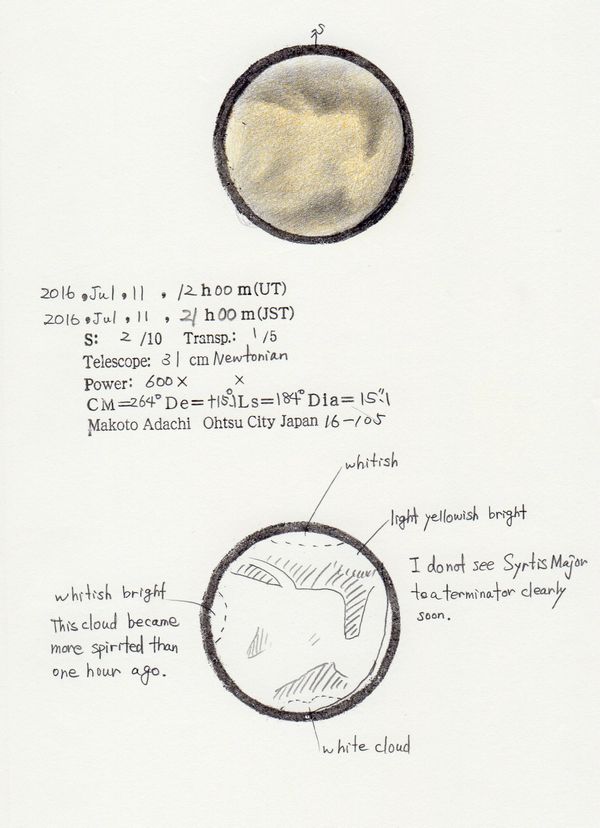 S
2016, Jul, 11, 12h00m(UT)
2016, Jul, 11, 21h00m(JST)
S: 2 /10 Transp.: 1 /5
Telescope: 31 cm Newtonian
Power: 600× ×
CM=264° De=+15°.1 Ls=184° Dia=15".1
Makoto Adachi Ohtsu City Japan 16-105
whitish
light yellowish bright
I do not see Syrtis Major
to a terminator clearly
soon.
whitish bright
This cloud became
more spirited than
one hour ago.
white cloud